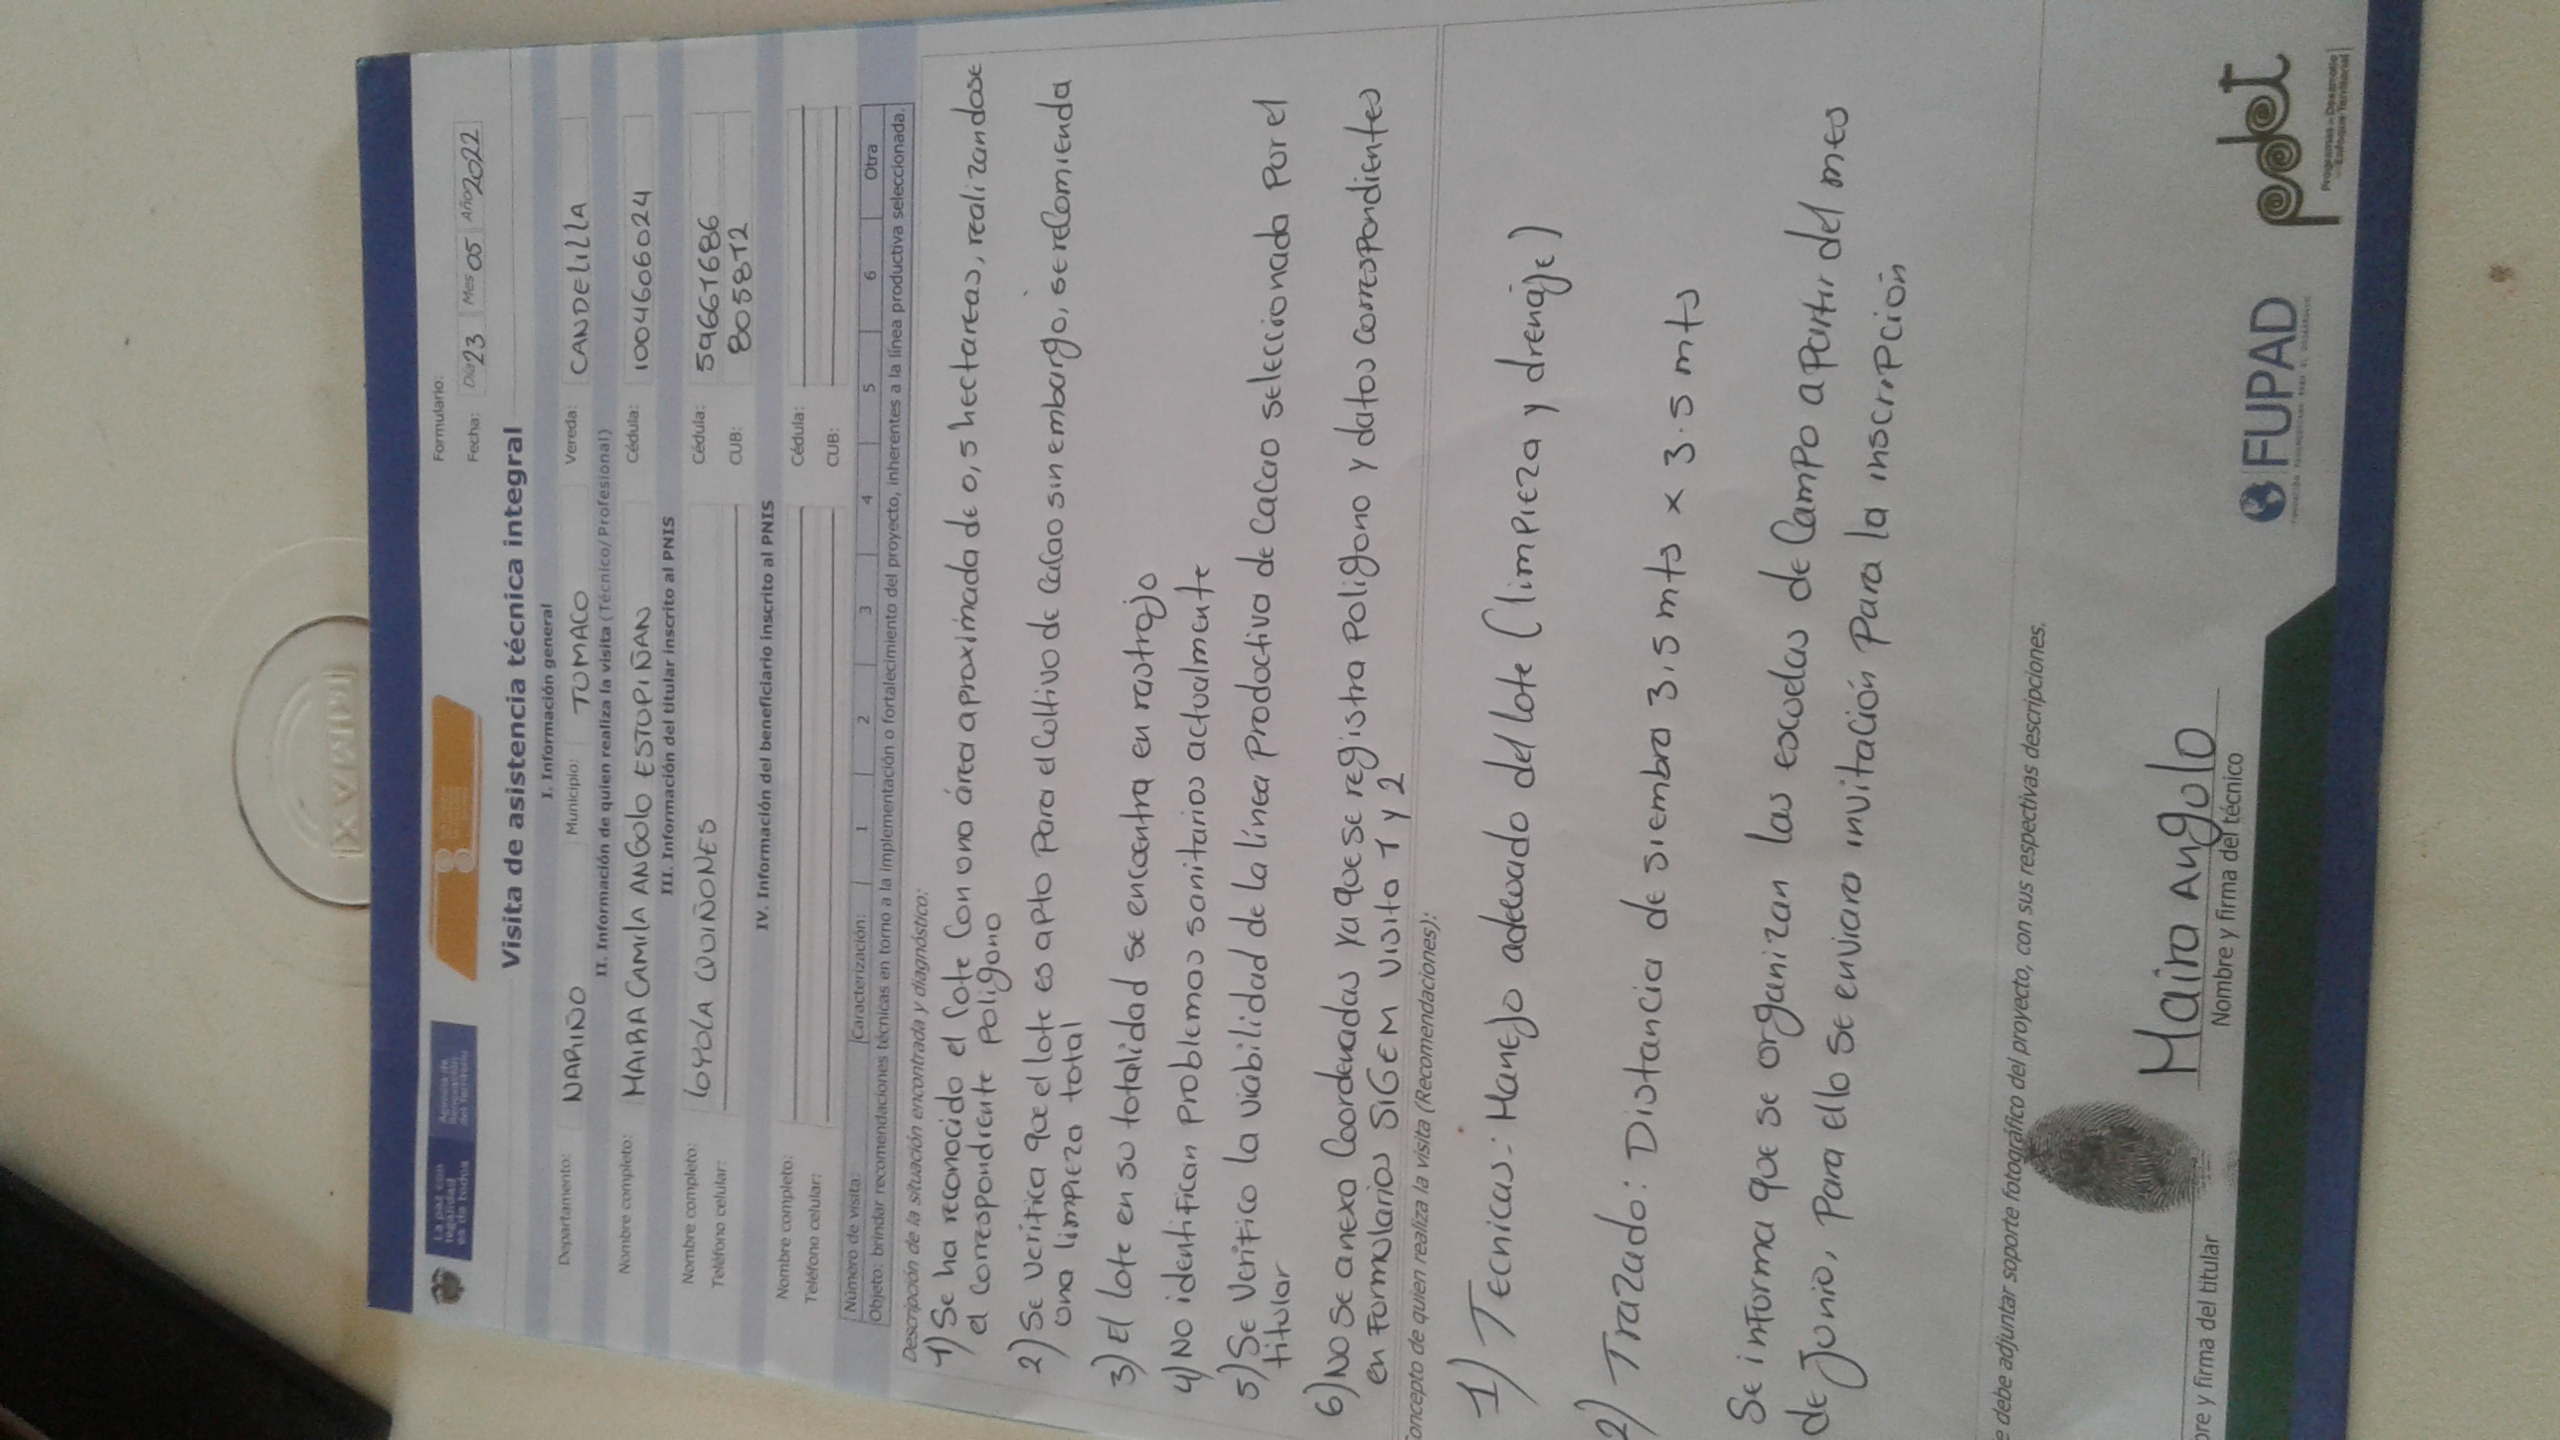 La paz con legalidad es de todos
Agencia de Renovación del Territorio
Formulario:
Fecha: Día 23 Mes 05 Año 2022
Visita de asistencia técnica integral
I. Información general
Departamento: NARIÑO Municipio: TUMACO Vereda: CANDELILLA
II. Información de quien realiza la visita (Técnico/Profesional)
Nombre completo: MAIRA CAMILA ANGULO ESTUPIÑAN Cédula: 1004606024
III. Información del titular inscrito al PNIS
Nombre completo: LOYOLA QUIÑONES Cédula: 59661686
Teléfono celular: CUB: 8058T2
IV. Información del beneficiario inscrito al PNIS
Nombre completo: Cédula:
Teléfono celular: CUB:
Número de visita: Caracterización: 1 2 3 4 5 6 Otra
Objeto: brindar recomendaciones técnicas en torno a la implementación o fortalecimiento del proyecto, inherentes a la línea productiva seleccionada.
Descripción de la situación encontrada y diagnóstico:
1) Se ha reconocido el lote con una área aproximada de 0,5 hectareas, realizandose
el correspondiente poligono
2) Se verifica que el lote es apto para el cultivo de cacao sin embargo, se recomienda
una limpieza total
3) El lote en su totalidad se encuentra en rastrojo
4) No identifican problemas sanitarios actualmente
5) Se verifico la viabilidad de la línea productiva de cacao seleccionada por el
titular
6) No se anexa coordenadas ya que se registra poligono y datos correspondientes
en formularios SIGEM visita 1 y 2
Concepto de quien realiza la visita (Recomendaciones):
1) Tecnicas: Manejo adecuado del lote (limpieza y drenaje)
2) Trazado: Distancia de siembra 3,5 mts x 3.5 mts
Se informa que se organizan las escuelas de campo a partir del mes
de junio, para ello se enviara invitación para la inscripción
e debe adjuntar soporte fotográfico del proyecto, con sus respectivas descripciones.
Maira Angulo
bre y firma del titular Nombre y firma del técnico
FUPAD
pdet
Programas de Desarrollo con Enfoque Territorial